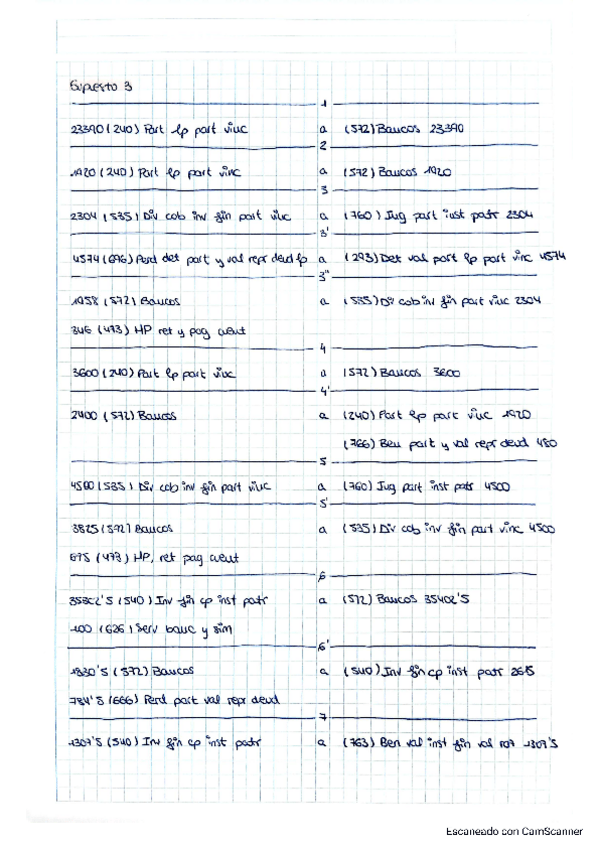 Supuesto 3
1
23390 (240) Part lp part vinc a (572) Bancos 23390
2
1920 (240) Part lp part vinc a (572) Bancos 1920
3
2304 (535) Div cob inv fin part vinc a (760) Ing part inst patr 2304
3'
4574 (696) Perd det part y val repr deud lp a (293) Det val part lp part vinc 4574
3''
1958 (572) Bancos a (535) Div cob inv fin part vinc 2304
346 (473) HP ret y pag cuent
4
3600 (240) Part lp part vinc a (572) Bancos 3600
4'
2400 (572) Bancos a (240) Part lp part vinc 1920
(766) Ben part y val repr deud 480
5
4500 (535) Div cob inv fin part vinc a (760) Ing part inst patr 4500
5'
3825 (572) Bancos a (535) Div cob inv fin part vinc 4500
675 (473) HP, ret pag cuent
6
35302'5 (540) Inv fin cp inst patr a (572) Bancos 35402'5
100 (626) Serv banc y sim
6'
1830'5 (572) Bancos a (540) Inv fin cp inst patr 2615
784'5 (666) Perd part val repr deud
7
1307'5 (540) Inv fin cp inst patr a (763) Ben val inst fin val raz 1307'5
Escaneado con CamScanner